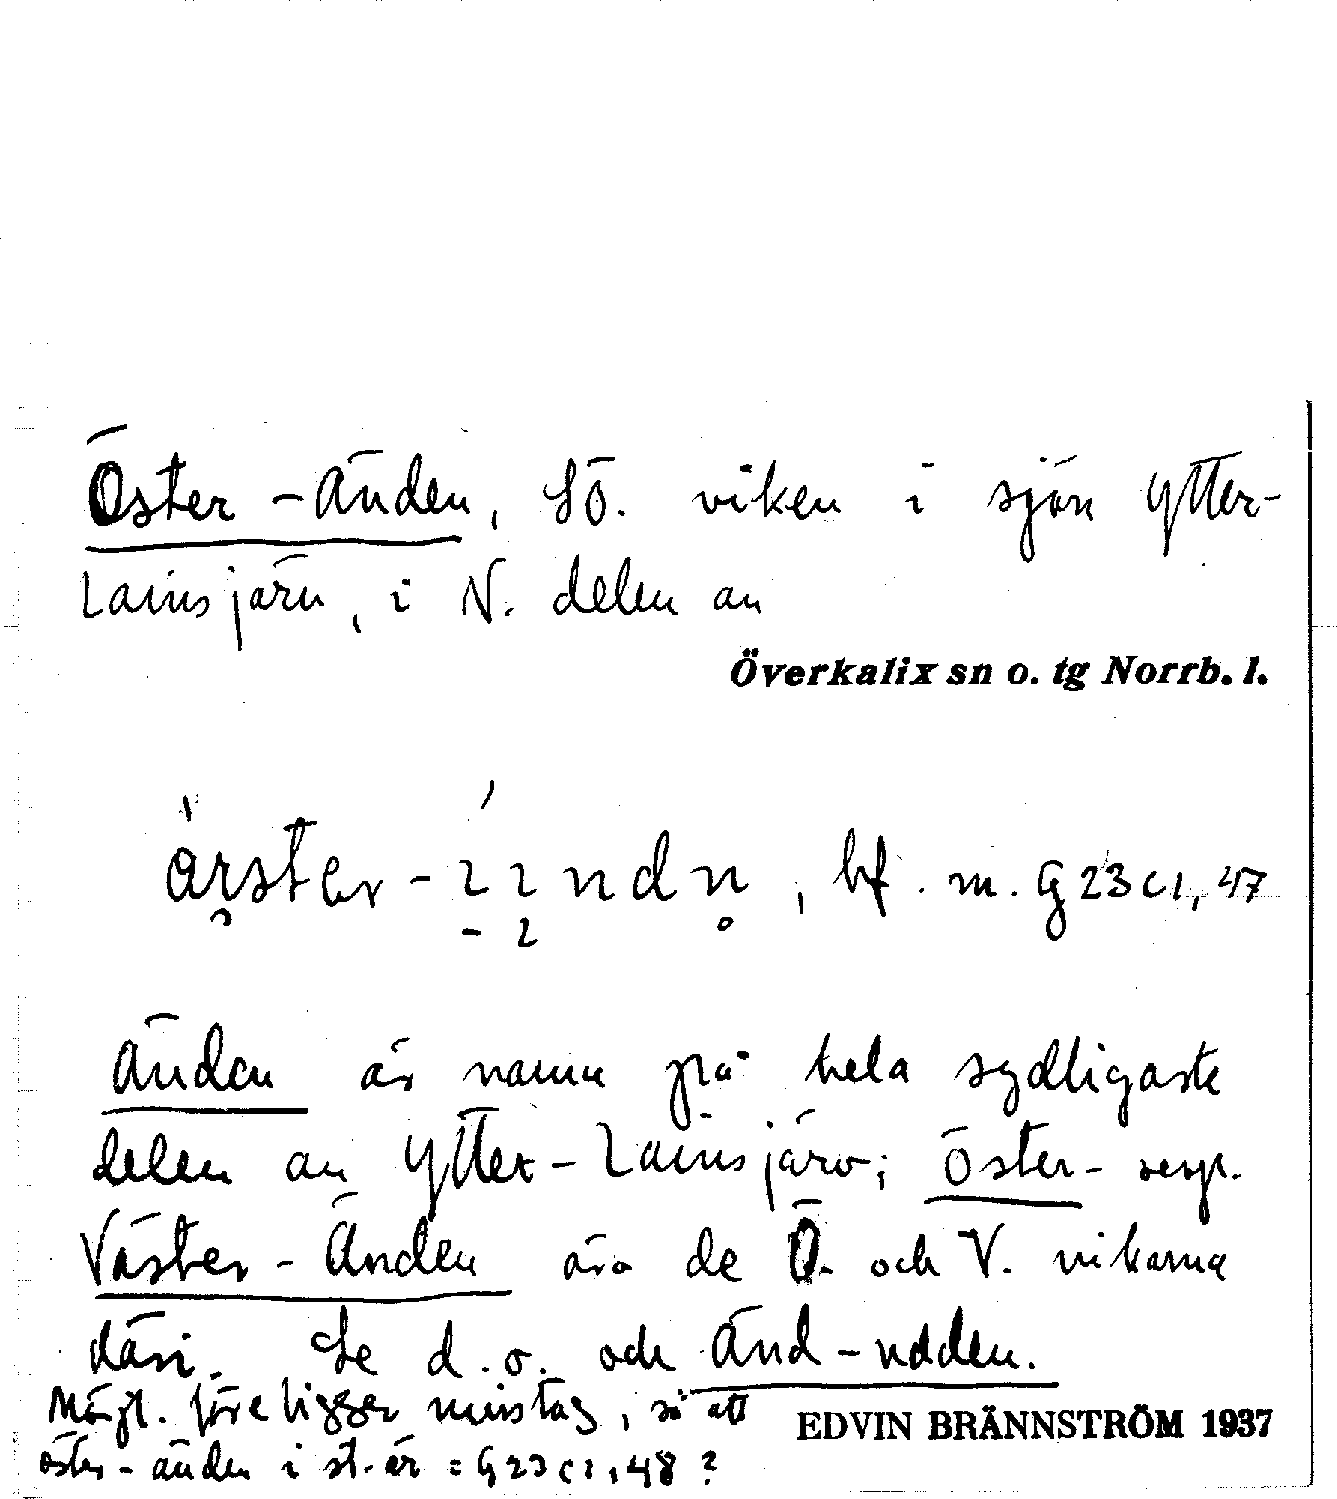 Öster-Änden, SÖ. viken i sjön Ytter-
Lainsjärv, i N. delen av
Överkalix sn o. tg Norrb. l.
bf. m. G23c1,47
Änden är namn på hela sydligaste
delen av Ytter-Lainsjärv; Öster- resp.
Väster-Änden äro de Ö. och V. vikarna
däri. Se d.o. och Änd-udden.
Möjl. föreligger misstag, så att
EDVIN BRÄNNSTRÖM 1937
öster-änden i st. är = G23c1,48?